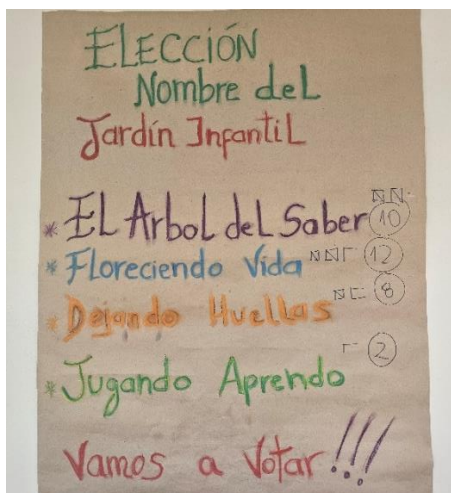 ELECCIÓN
Nombre del
Jardín Infantil
* El Arbol del Saber 10
* Floreciendo Vida 12
* Dejando Huellas 8
* Jugando Aprendo 2
Vamos a Votar!!!